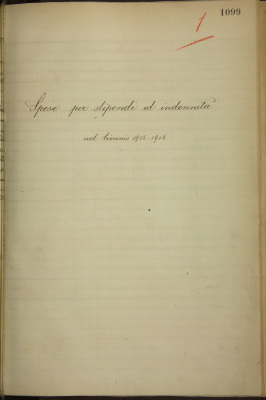 1 1099
Spese per stipendi ed indennità
nel biennio 1915-1916